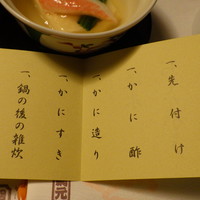 一、先付け
一、かに酢
一、かに造り
一、かにすき
一、鍋の後の雑炊